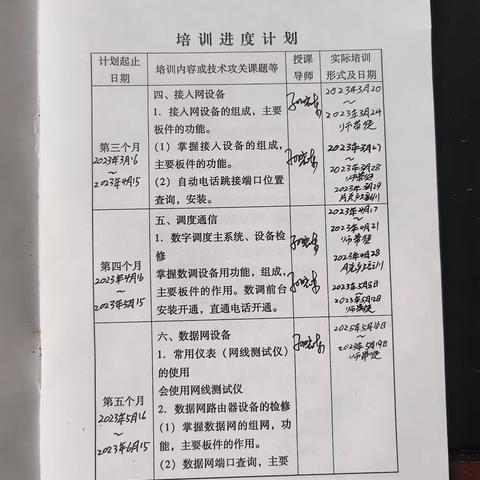 培训进度计划
计划起止
日期
培训内容或技术攻关课题等
授课
导师
实际培训
形式及日期
第三个月
2023年3月16
～
2023年4月15
四、接入网设备
1．接入网设备的组成，主要
板件的功能。
(1) 掌握接入设备的组成，
主要板件的功能。
(2) 自动电话跳接端口位置
查询，安装。
2023年3月20
～
2023年3月24
师带徒
2023年3月27
～
2023年3月28
师带徒
2023年3月29
第四个月
2023年4月16
～
2023年5月15
五、调度通信
1．数字调度主系统、设备检
修
掌握数调设备用功能，组成，
主要板件的作用。数调前台
安装开通，直通电话开通。
2023年4月17
～
2023年4月21
师带徒
2023年4月28
2023年5月8日
～
2023年5月12日
师带徒
第五个月
2023年5月16
～
2023年6月15
六、数据网设备
1．常用仪表（网线测试仪）
的使用
会使用网线测试仪
2．数据网路由器设备的检修
(1) 掌握数据网的组网，功
能，主要板件的作用。
(2) 数据网端口查询，主要
2023年5月16日
～
2023年5月19日
师带徒